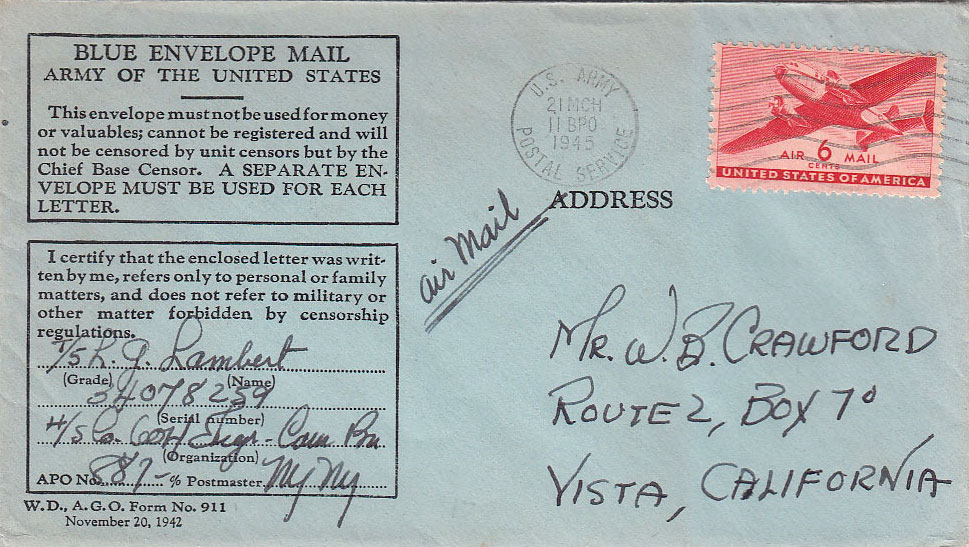 BLUE ENVELOPE MAIL
ARMY OF THE UNITED STATES
This envelope must not be used for money
or valuables; cannot be registered and will
not be censored by unit censors but by the
Chief Base Censor. A SEPARATE EN-
VELOPE MUST BE USED FOR EACH
LETTER.
I certify that the enclosed letter was writ-
ten by me, refers only to personal or family
matters, and does not refer to military or
other matter forbidden by censorship
regulations.
T/5 L. G. Lambert
(Grade) (Name)
34078259
(Serial number)
H/S Co. Engr- Bn
(Organization)
APO No. 887- % Postmaster NY NY
W.D., A.G.O. Form No. 911
November 20, 1942
U.S. ARMY
21 MCH
11 BPO
1945
POSTAL SERVICE
AIR 6 MAIL
CENTS
UNITED STATES OF AMERICA
ADDRESS
air Mail
MR. W. B. CRAWFORD
ROUTE 2, BOX 70
VISTA, CALIFORNIA